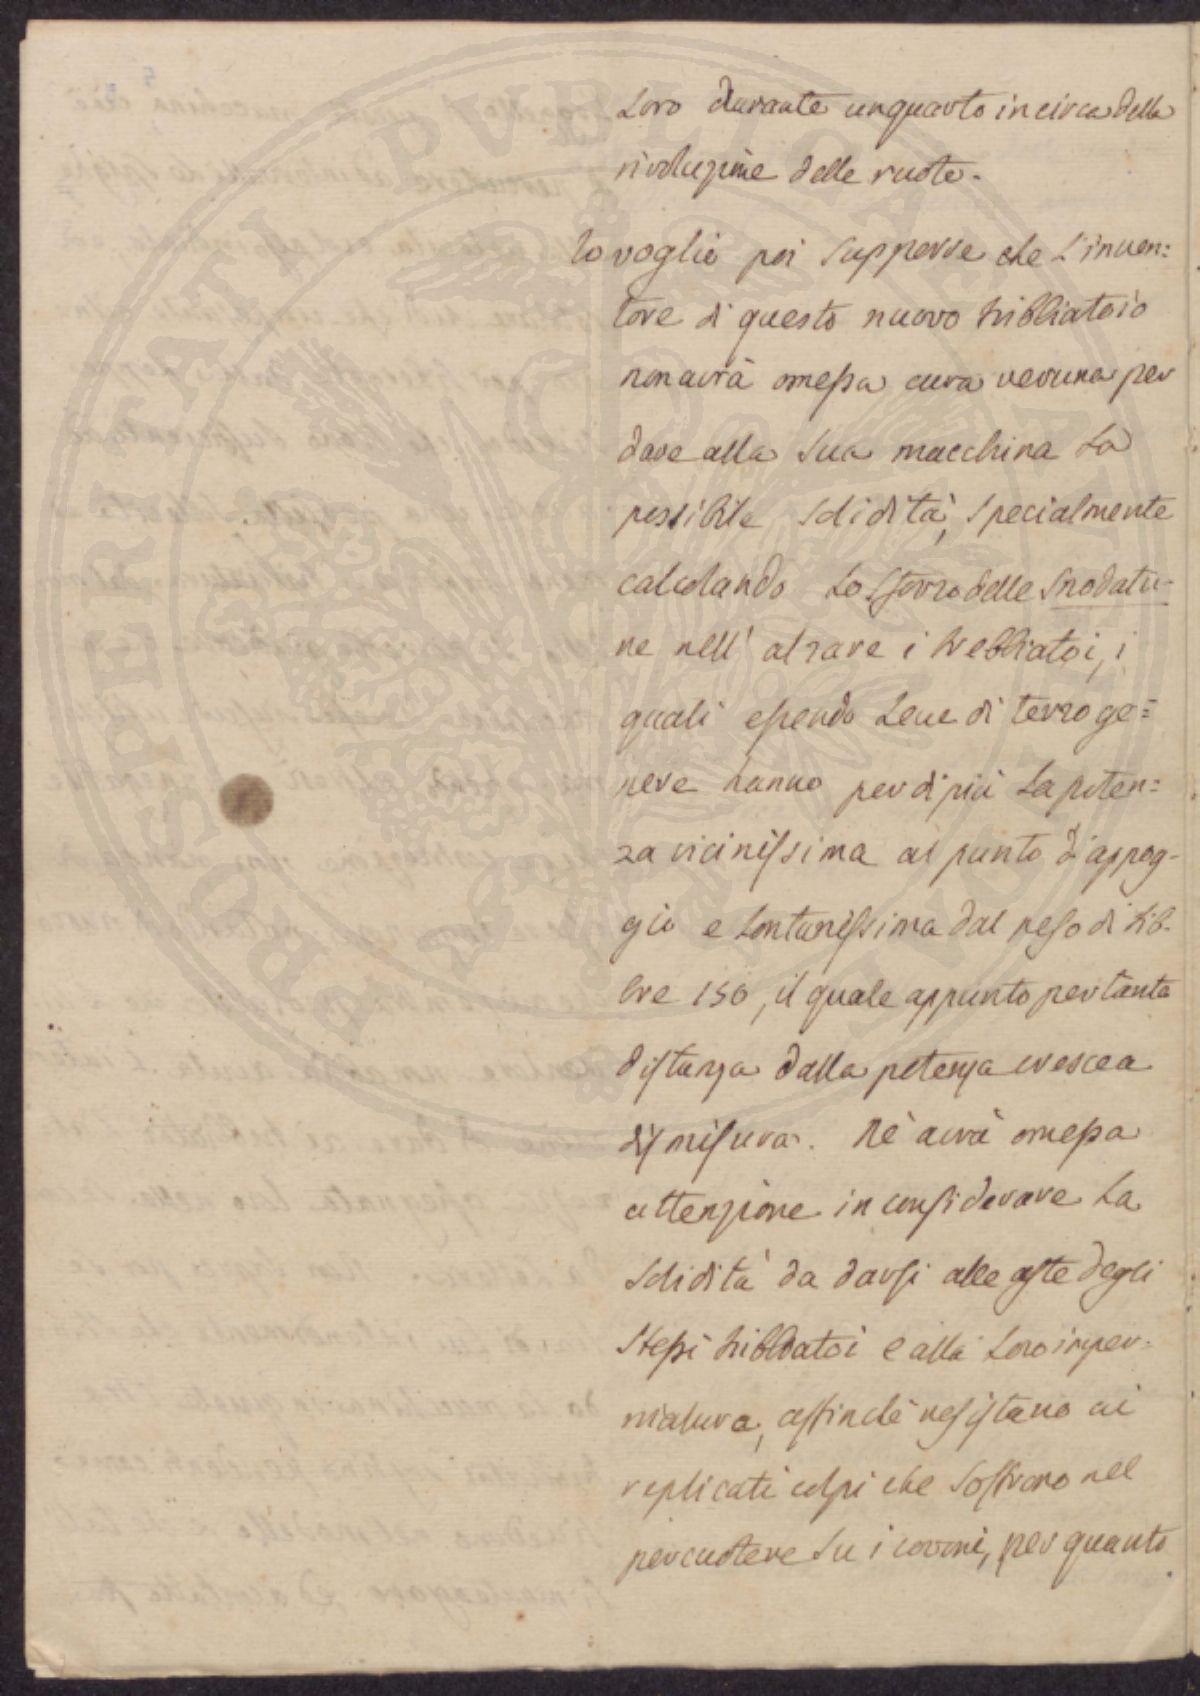 Loro durante un quarto in circa della
rivoluzione delle ruote.
Io voglio poi supporre che L'inven=
tore di questo nuovo tribbiatoio
non avrà omessa cura veruna per
dare alla sua macchina La
possibile solidità, specialmente
calcolando Lo sforzo delle snodatu-
re nell' alzare i trebbiatoi, i
quali essendo Leve di terzo ge=
nere hanno per di più La poten=
za vicinissima al punto d'appog-
gio e Lontanissima dal peso di Lib-
bre 150, il quale appunto per tanta
distanza dalla potenza cresce a
dismisura. Nè avrà omessa
attenzione in considerare La
solidità da darsi alle aste degli
stessi tribbiatoi e alla Loro imper-
niatura, affinchè resistano ai
replicati colpi che soffrono nel
percuotere su i covoni, per quanto
PROSPERITATI PVBLICAE AVGENDAE